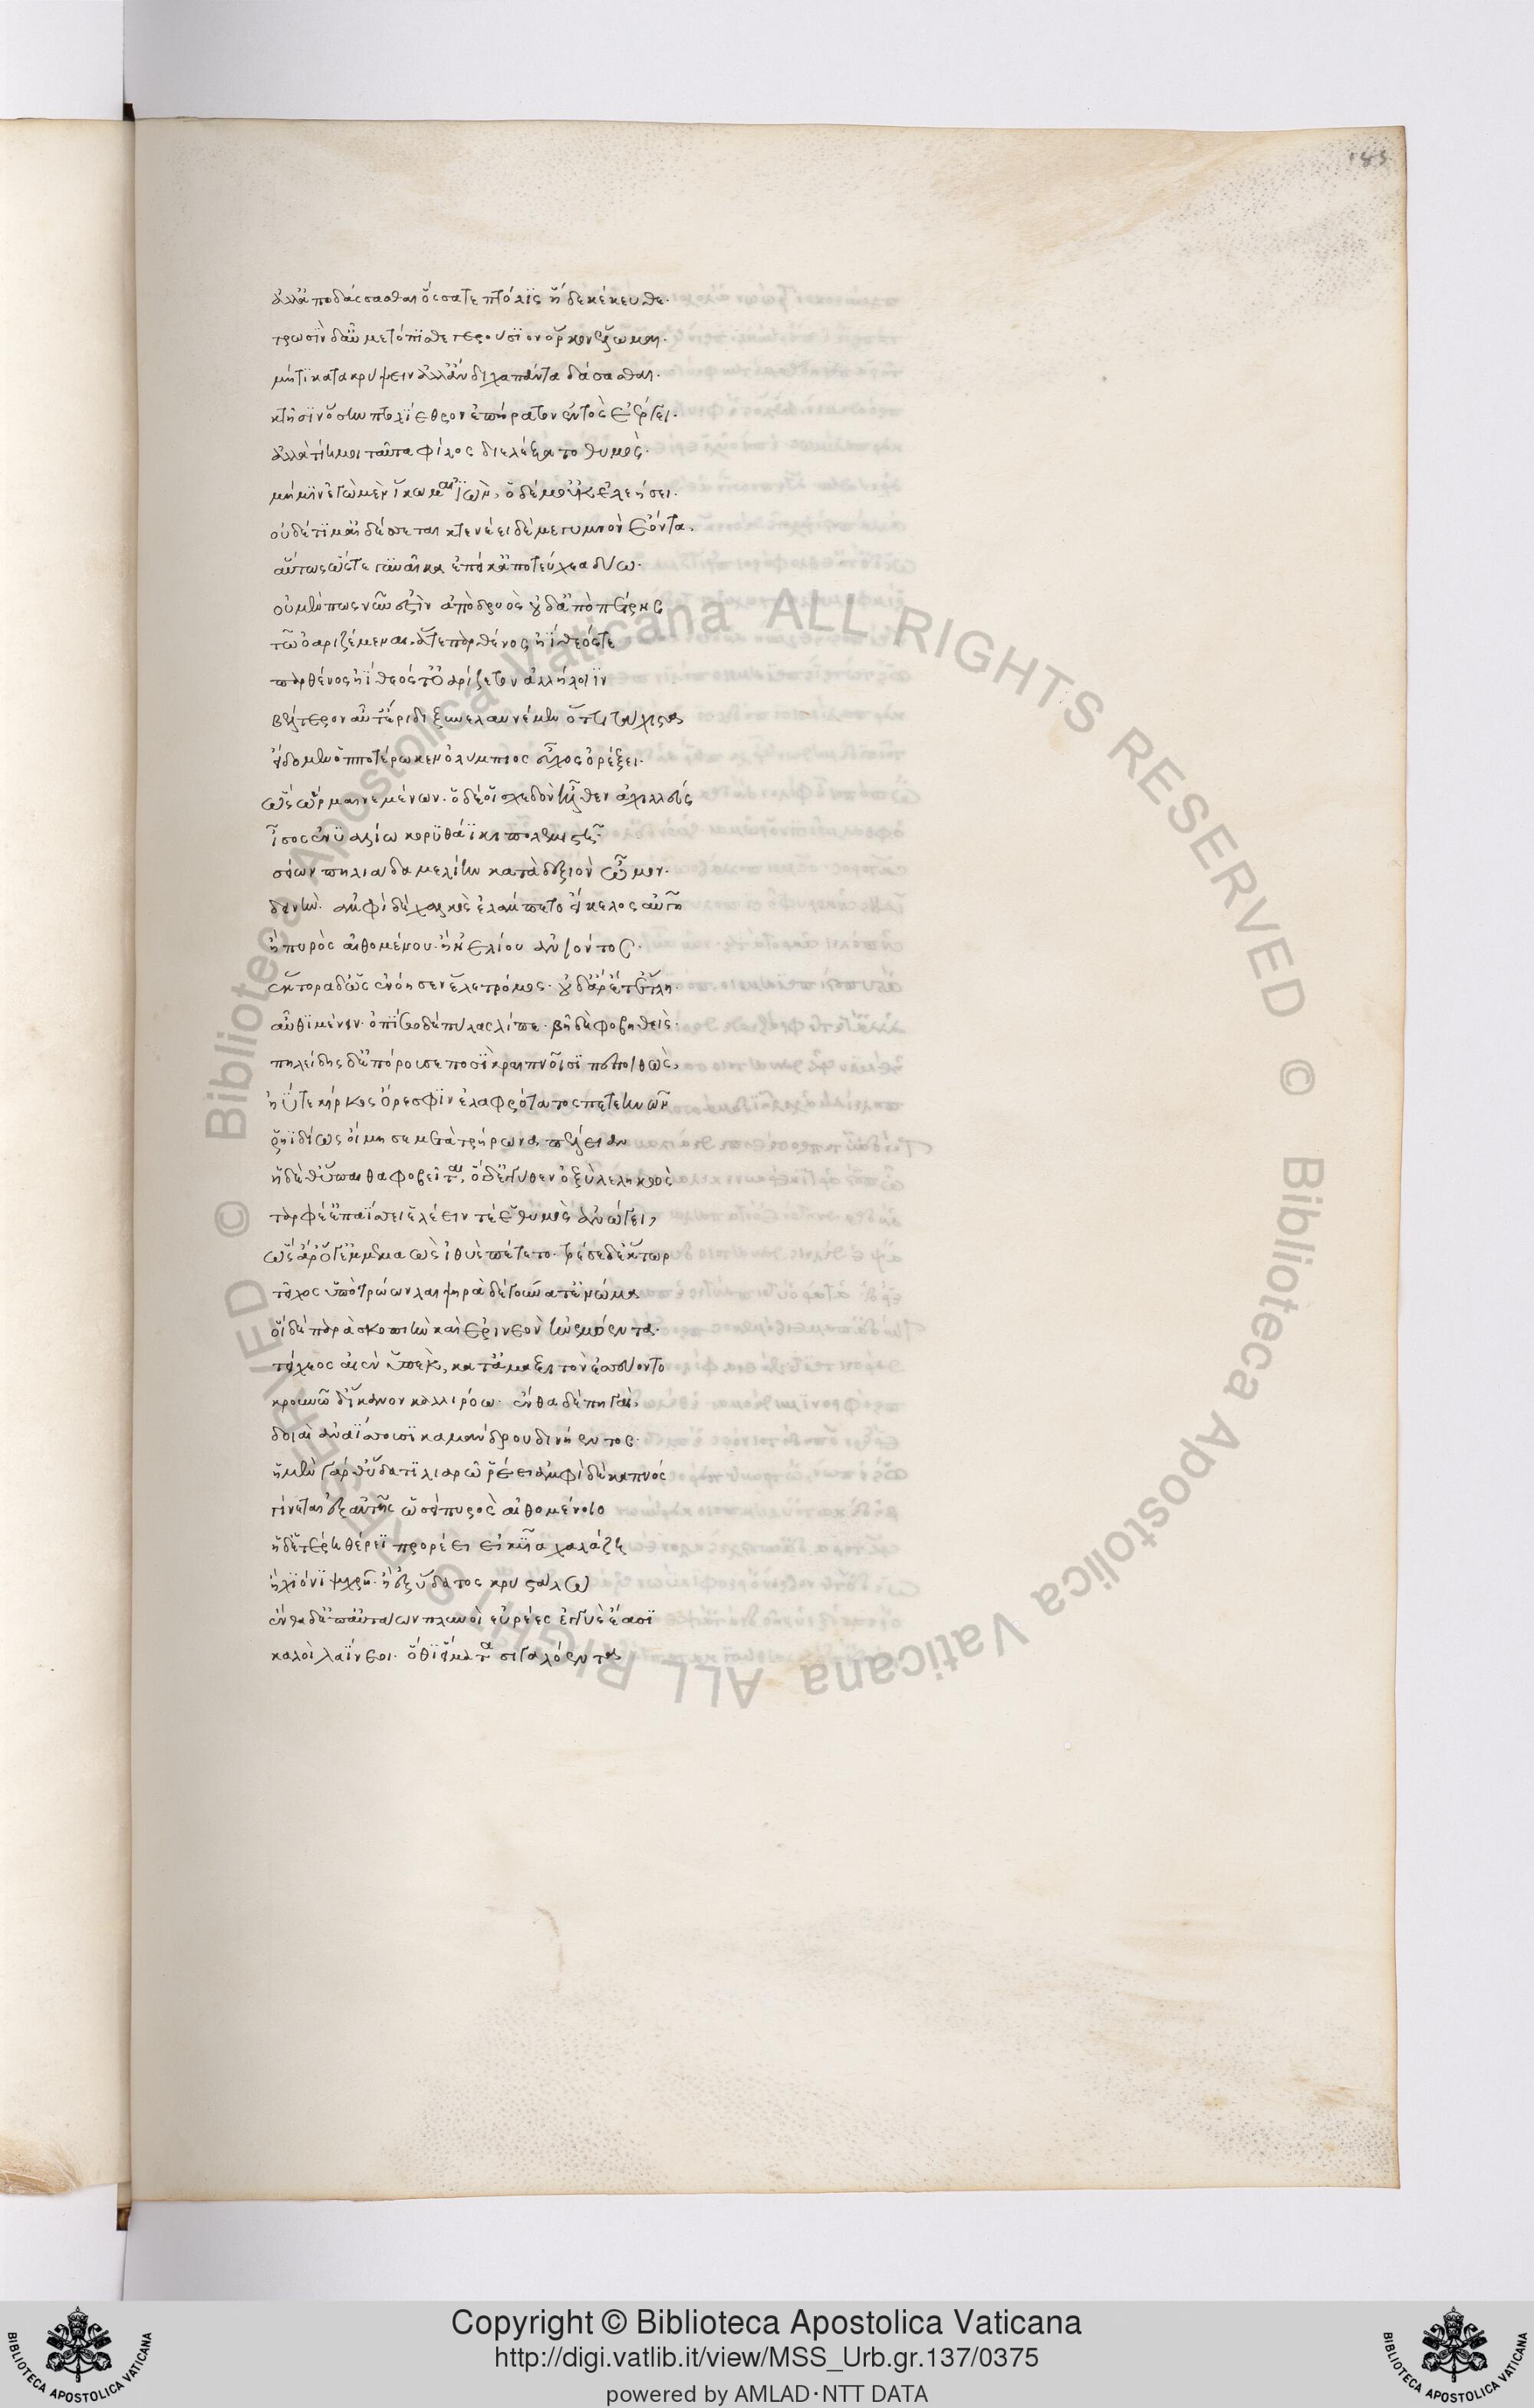 183
ἀλλὰ ἀποδάσσασθαι ὅσσά τε πτόλις ἥδε κέκευθε·
τρωσὶν δ' αὖ μετόπισθε γερούσιον ὅρκον ἕλωμαι·
μήτι κατακρύψειν ἀλλ' ἄνδιχα πάντα δάσασθαι·
κτῆσιν ὅσην πτολίεθρον ἐπήρατον ἐντὸς ἐέργει·
ἀλλὰ τίη μοι ταῦτα φίλος διελέξατο θυμός·
μή μιν ἐγὼ μὲν ἵκωμαι ἰών, ὁ δέ μ' οὐκ ἐλεήσει·
οὐδέ τί μ' αἰδέσεται κτενέει δέ με γυμνὸν ἐόντα·
αὔτως ὥστε γυναῖκα ἐπεί κ' ἀπὸ τεύχεα δύω·
οὐ μήν πως νῦν ἐστὶν ἀπὸ δρυὸς οὐδ' ἀπὸ πέτρης
τῷ ὀαριζέμεναι, ἅτε παρθένος ἠΐθεός τε
παρθένος ἠΐθεός τ' ὀαρίζετον ἀλλήλοιϊν
βέλτερον αὖτ' ἔριδι ξυνελαυνέμεν ὅττι τάχιστα
εἴδομεν ὁπποτέρῳ κεν ὀλύμπιος εὖχος ὀρέξει·
ὣς ὥρμαινε μένων· ὁ δέ οἱ σχεδὸν ἦλθεν ἀχιλλεύς
ἶσος ἐνυαλίω κορυθάϊκι πολεμιστῇ·
σείων πηλιάδα μελίην κατὰ δεξιὸν ὦμον·
δεινήν· ἀμφὶ δὲ χαλκὸς ἐλάμπετο εἴκελος αὐγῇ
ἢ πυρὸς αἰθομένου· ἢ ἠελίου ἀνιόντος·
ἕκτορα δ' ὡς ἐνόησεν ἕλε τρόμος· οὐδ' ἄρ' ἔτ' ἔτλη·
αὖθι μένειν· ὀπίσω δὲ πύλας λίπε· βῆ δὲ φοβηθείς·
πηλείδης δ' ἐπόρουσε ποσὶ κραιπνοῖσι πεποιθώς,
ἠΰτε κίρκος ὄρεσφιν ἐλαφρότατος πετεηνῶν
ῥηϊδίως οἴμησε μετὰ τρήρωνα πέλειαν
ἡ δέ θ' ὕπαιθα φοβεῖται, ὁ δ' ἐγγύθεν ὀξὺ λεληκὼς
ταρφέ' ἐπαΐσσει ἑλέειν τέ ἑ θυμὸς ἀνώγει,
ὣς ἄρ' ὅγ' ἐμμεμαὼς ἰθὺς πέτετο· τρέσε δ' ἕκτωρ
τεῖχος ὕπο τρώων λαιψηρὰ δὲ γούνατ' ἐνώμα
οἱ δὲ παρὰ σκοπιὴν καὶ ἐρινεὸν ἠνεμόεντα·
τείχεος αἰὲν ὑπὲκ, κατ' ἄμαξιτὸν ἐσσεύοντο
κρουνῶ δ' ἵκανον καλλιρόω· ἔνθα δὲ πηγαί,
δοιαὶ ἀναΐσσουσι σκαμάνδρου δινήεντος·
ἡ μὲν γάρ θ' ὕδατι λιαρῷ ῥέει ἀμφὶ δὲ καπνός
γίνεται ἐξ αὐτῆς ὡσεὶ πυρὸς αἰθομένοιο
ἡ δ' ἑτέρη θέρεϊ προρέει εἰκυῖα χαλάζῃ
ἢ χιόνι ψυχρῇ· ἢ ἐξ ὕδατος κρυστάλλω
ἔνθα δ' ἐπ' αὐτάων πλυνοὶ εὐρέες ἐγγὺς ἔασι
καλοὶ λαΐνεοι· ὅθι εἵματα σιγαλόεντα